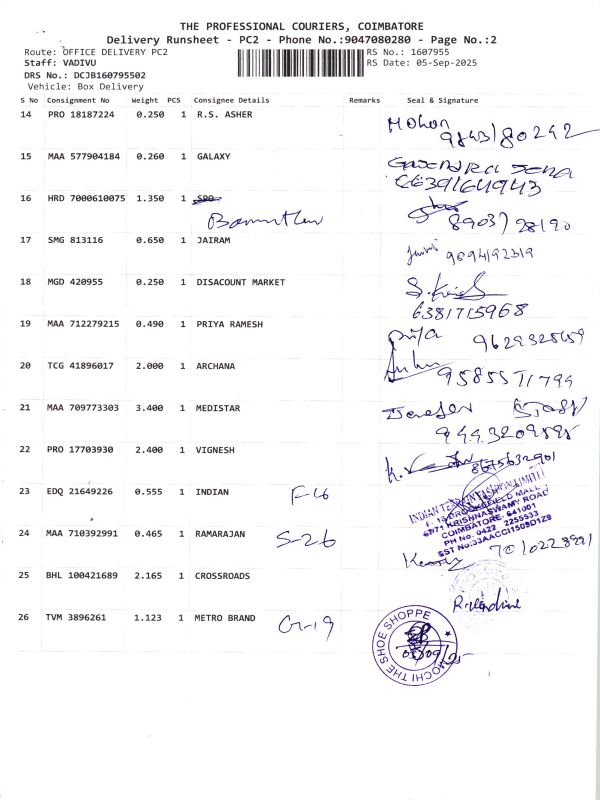 THE PROFESSIONAL COURIERS, COIMBATORE
Delivery Runsheet - PC2 - Phone No.:9047080280 - Page No.:2
Route: OFFICE DELIVERY PC2 RS No.: 1607955
Staff: VADIVU RS Date: 05-Sep-2025
DRS No.: DCJB160795502
Vehicle: Box Delivery
S No Consignment No Weight PCS Consignee Details Remarks Seal & Signature
14 PRO 18187224 0.250 1 R.S. ASHER Mohan
9843180242
15 MAA 577904184 0.260 1 GALAXY
16 HRD 7000610075 1.350 1 SRO
8903728190
17 SMG 813116 0.650 1 JAIRAM
9694192319
18 MGD 420955 0.250 1 DISACOUNT MARKET
6381715968
19 MAA 712279215 0.490 1 PRIYA RAMESH Priya
20 TCG 41896017 2.000 1 ARCHANA
21 MAA 709773303 3.400 1 MEDISTAR
22 PRO 17703930 2.400 1 VIGNESH
8675632901
23 EDQ 21649226 0.555 1 INDIAN F-16
F- 16 BROOKEFIELD MALL
67/71 KRISHNASWAMY ROAD
COIMBATORE. 641001
PH No. 0422 2255533
GST No:33AACCI1509D1Z9
24 MAA 710392991 0.465 1 RAMARAJAN S-26
25 BHL 100421689 2.165 1 CROSSROADS
26 TVM 3896261 1.123 1 METRO BRAND G-19
MOCHI THE SHOE SHOPPE